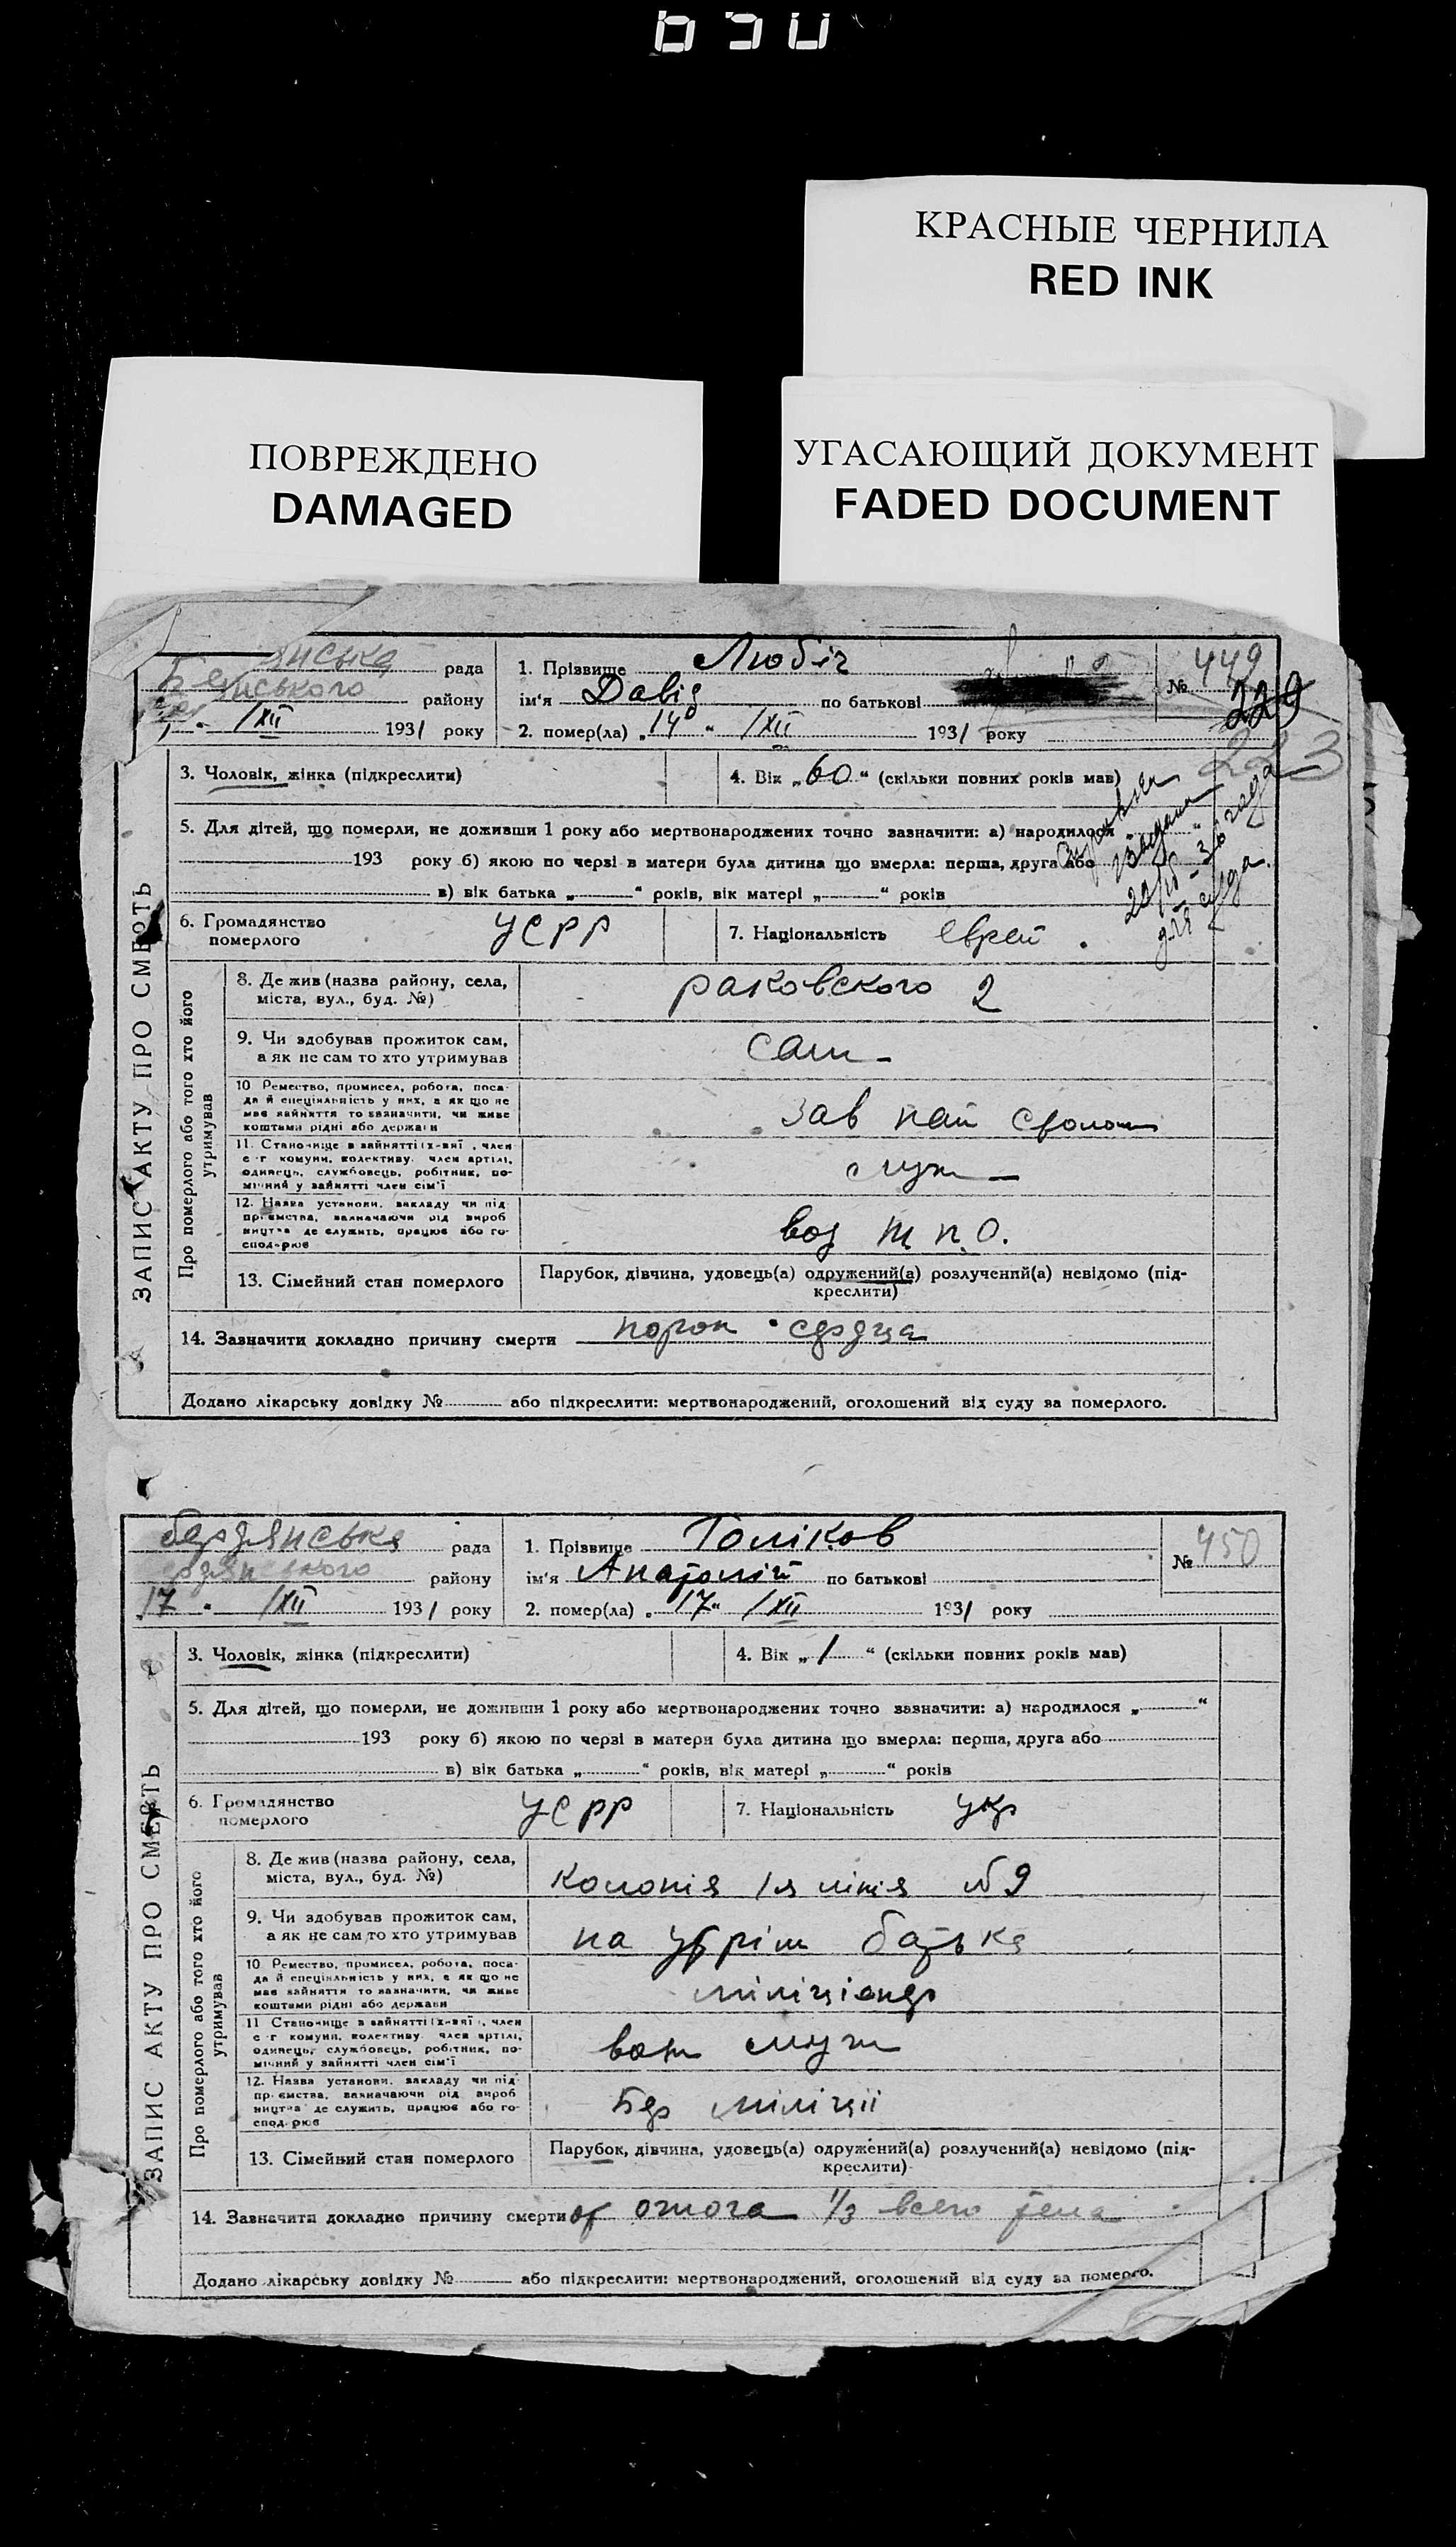 КРАСНЫЕ ЧЕРНИЛА
RED INK
ПОВРЕЖДЕНО
DAMAGED
УГАСАЮЩИЙ ДОКУМЕНТ
FADED DOCUMENT
ЗАПИС АКТУ ПРО СМЕРТЬ
янська рада
нського району
/XII 1931 року
1. Прізвище Любіч
ім'я Давід по батькові
2. помер(ла) „14" /XII 1931 року
№ 449
229
223
3. Чоловік, жінка (підкреслити)
4. Вік „60" (скільки повних років мав)
5. Для дітей, що померли, не доживши 1 року або мертвонароджених точно зазначити: а) народилося
193 року б) якою по черзі в матери була дитина що вмерла: перша, друга або
в) вік батька „ " років, вік матері „ " років
для суда.
6. Громадянство померлого УСРР
7. Національність еврей
Про померлого або того хто його утримував
8. Де жив (назва району, села,
міста, вул., буд. №) раковского 2
9. Чи здобував прожиток сам,
а як не сам то хто утримував сам
10 Ремество, промисел, робота, поса-
да й спеціяльність у них, а як що не
має зайняття то зазначити, чи живе
коштами рідні або держави зав
11. Становище в зайнятті , член
с-г комуни, колективу, член артілі,
одинець, службовець, робітник, по-
мічний у зайнятті член сім'ї служ
12. Назва установи, закладу чи під
приємства, зазначаючи від вироб
ництва де служить, працює або го-
сподарює т п о.
13. Сімейний стан померлого
Парубок, дівчина, удовець(а) одружений(а) розлучений(а) невідомо (під-
креслити)
14. Зазначити докладно причину смерти порок сердца
Додано лікарську довідку № або підкреслити: мертвонароджений, оголошений від суду за померлого.
ЗАПИС АКТУ ПРО СМЕРТЬ
бердянська рада
ердянського району
17 " /XII 1931 року
1. Прізвище Голіков
ім'я Анатолій по батькові
2. помер(ла) „17" /XII 1931 року
№ 450
3. Чоловік, жінка (підкреслити)
4. Вік „1" (скільки повних років мав)
5. Для дітей, що померли, не доживши 1 року або мертвонароджених точно зазначити: а) народилося „ "
193 року б) якою по черзі в матери була дитина що вмерла: перша, друга або
в) вік батька „ " років, вік матері „ " років
6. Громадянство померлого УСРР
7. Національність укр
Про померлого або того хто його утримував
8. Де жив (назва району, села,
міста, вул., буд. №) колонія 1я лінія № 9
9. Чи здобував прожиток сам,
а як не сам то хто утримував на утрім батька
10 Ремество, промисел, робота, поса-
да й спеціяльність у них, а як що не
має зайняття то зазначити, чи живе
коштами рідні або держави міліціонер
11 Становище в зайнятті , член
с-г комуни, колективу член артілі,
одинець, службовець, робітник, по-
мічний у зайнятті член сім'ї служ
12. Назва установи, закладу чи під
приємства, зазначаючи від вироб
ництва де служить, працює або го-
сподарює Бер міліціі
13. Сімейний стан померлого
Парубок, дівчина, удовець(а) одружений(а) розлучений(а) невідомо (під-
креслити)
14. Зазначити докладно причину смерти от ожога 1/3 всего тела
Додано лікарську довідку № або підкреслити: мертвонароджений, оголошений від суду за померго.